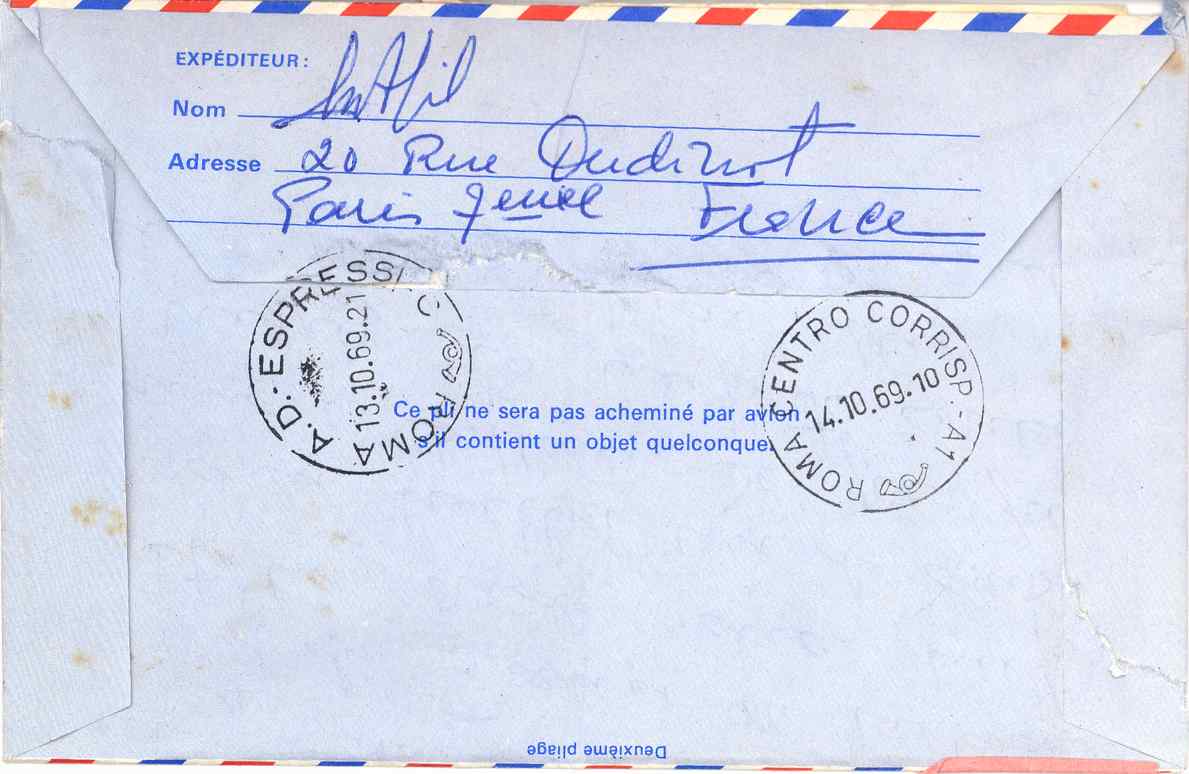 EXPÉDITEUR:
Nom
Adresse 20 Rue Oudinot
Paris 7eme France
A.D.-ESPRESSI
ROMA
13.10.69.21
ROMA CENTRO CORRISP.-A1
14.10.69.10
Ce pli ne sera pas acheminé par avion
s'il contient un objet quelconque.
Deuxième pliage